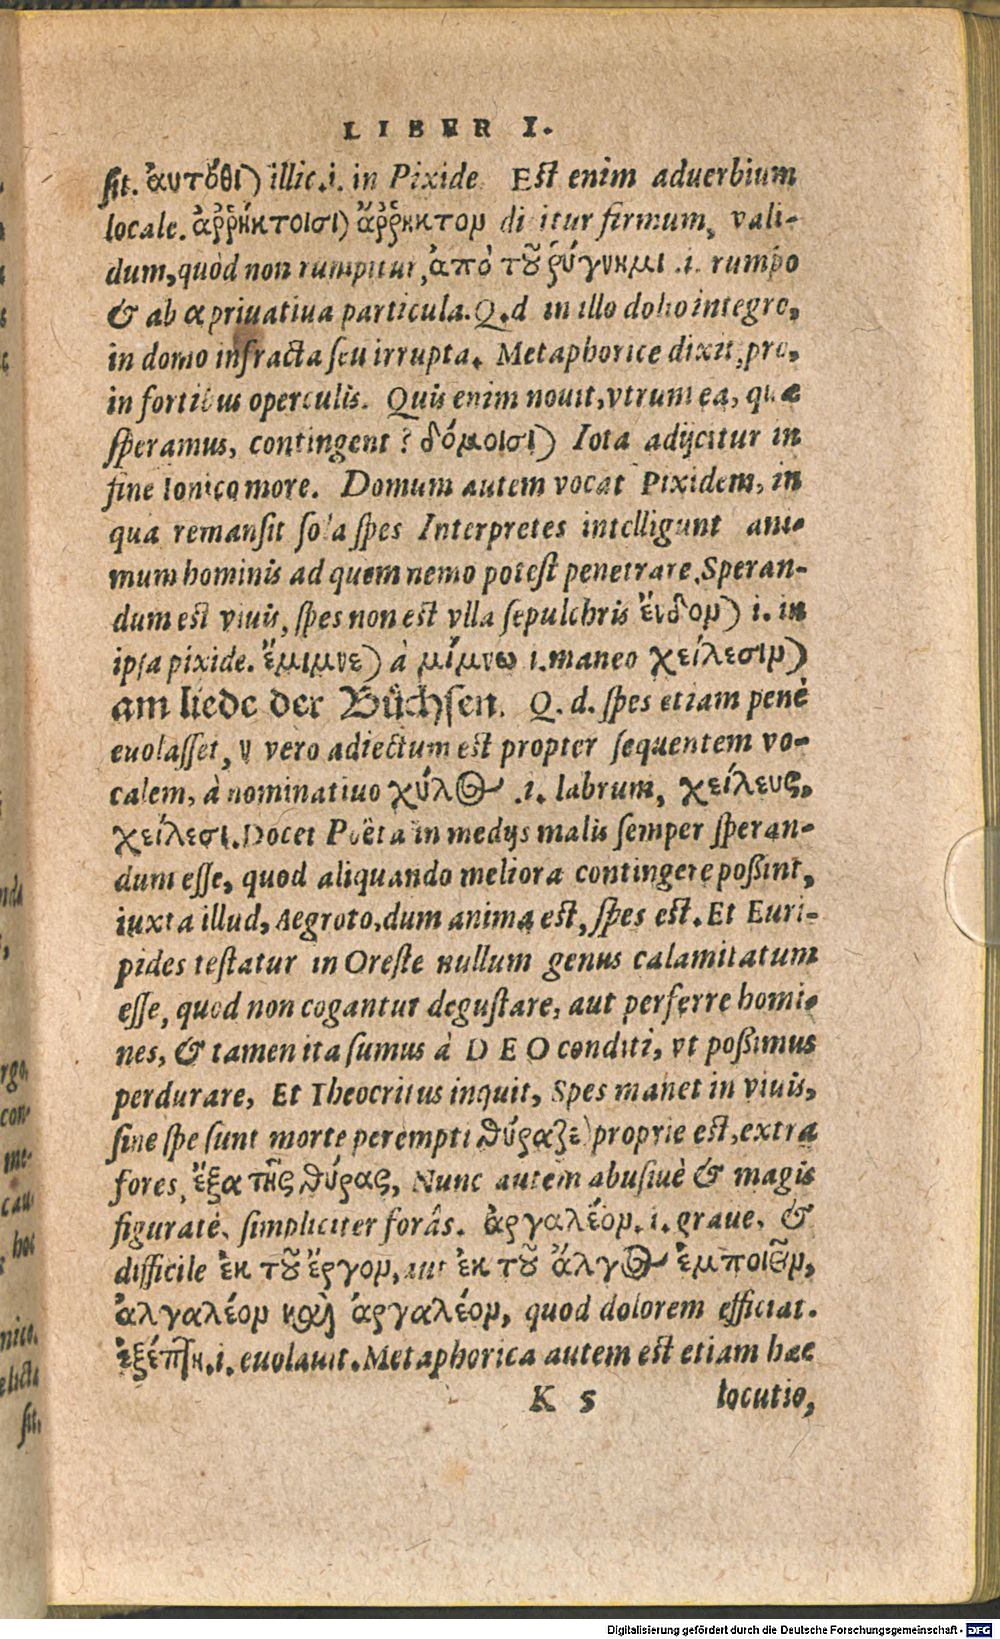 LIBER I.
sit. ἀυτόθι) illic.i. in Pixide Est enim aduerbium
locale. ἀῤῥήκτοισι) ἄῤῥηκτον di itur firmum, vali-
dum, quòd non rumpitur, ἀπὸ τοῦ ῥύγνημι .i. rumpo
& ab α priuatiua particula. Q.d in illo doliointegro,
in domo infracta seu irrupta. Metaphorice dixit, pro,
in fortibus operculis. Quis enim nouit, vtrum ea, quæ
speramus, contingent? δόμοισι) Iota adijcitur in
fine Ionico more. Domum autem vocat Pixidem, in
qua remansit sola spes Interpretes intelligunt ani-
mum hominis ad quem nemo potest penetrare. Speran-
dum est viuis, spes non est vlla sepulchris ἔνδον) i. in
ipsa pixide. ἔμιμνε) à μίμνω i. maneo χείλεσιν)
am liede der Büchsen. Q. d. spes etiam penè
euolasset, ν vero adiectum est propter sequentem vo-
calem, à nominatiuo χύλος .i. labrum, χείλευς,
χείλεσι. Docet Poëta in medijs malis semper speran-
dum esse, quod aliquando meliora contingere poßint,
iuxta illud, Aegroto, dum anima est, spes est. Et Euri-
pides testatur in Oreste nullum genus calamitatum
esse, quod non cogantur degustare, aut perferre homi-
nes, & tamen ita sumus à DEO conditi, vt poßimus
perdurare, Et Theocritus inquit, Spes manet in viuis,
sine spe sunt morte perempti θύραζε) proprie est, extra
fores, ἔξα τῆς θύρας, Nunc autem abusiuè & magis
figuratè, simpliciter forâs. ἀργαλέον. i. graue, &
difficile ἐκ τοῦ ἔργον, aut ἐκ τοῦ ἄλγος ἐμποιοῦν,
ἀλγαλέον καὶ ἀργαλέον, quod dolorem efficiat.
ἐξέπτη.i. euolauit. Metaphorica autem est etiam hæc
K 5 locutio,
Digitalisierung gefördert durch die Deutsche Forschungsgemeinschaft - DFG